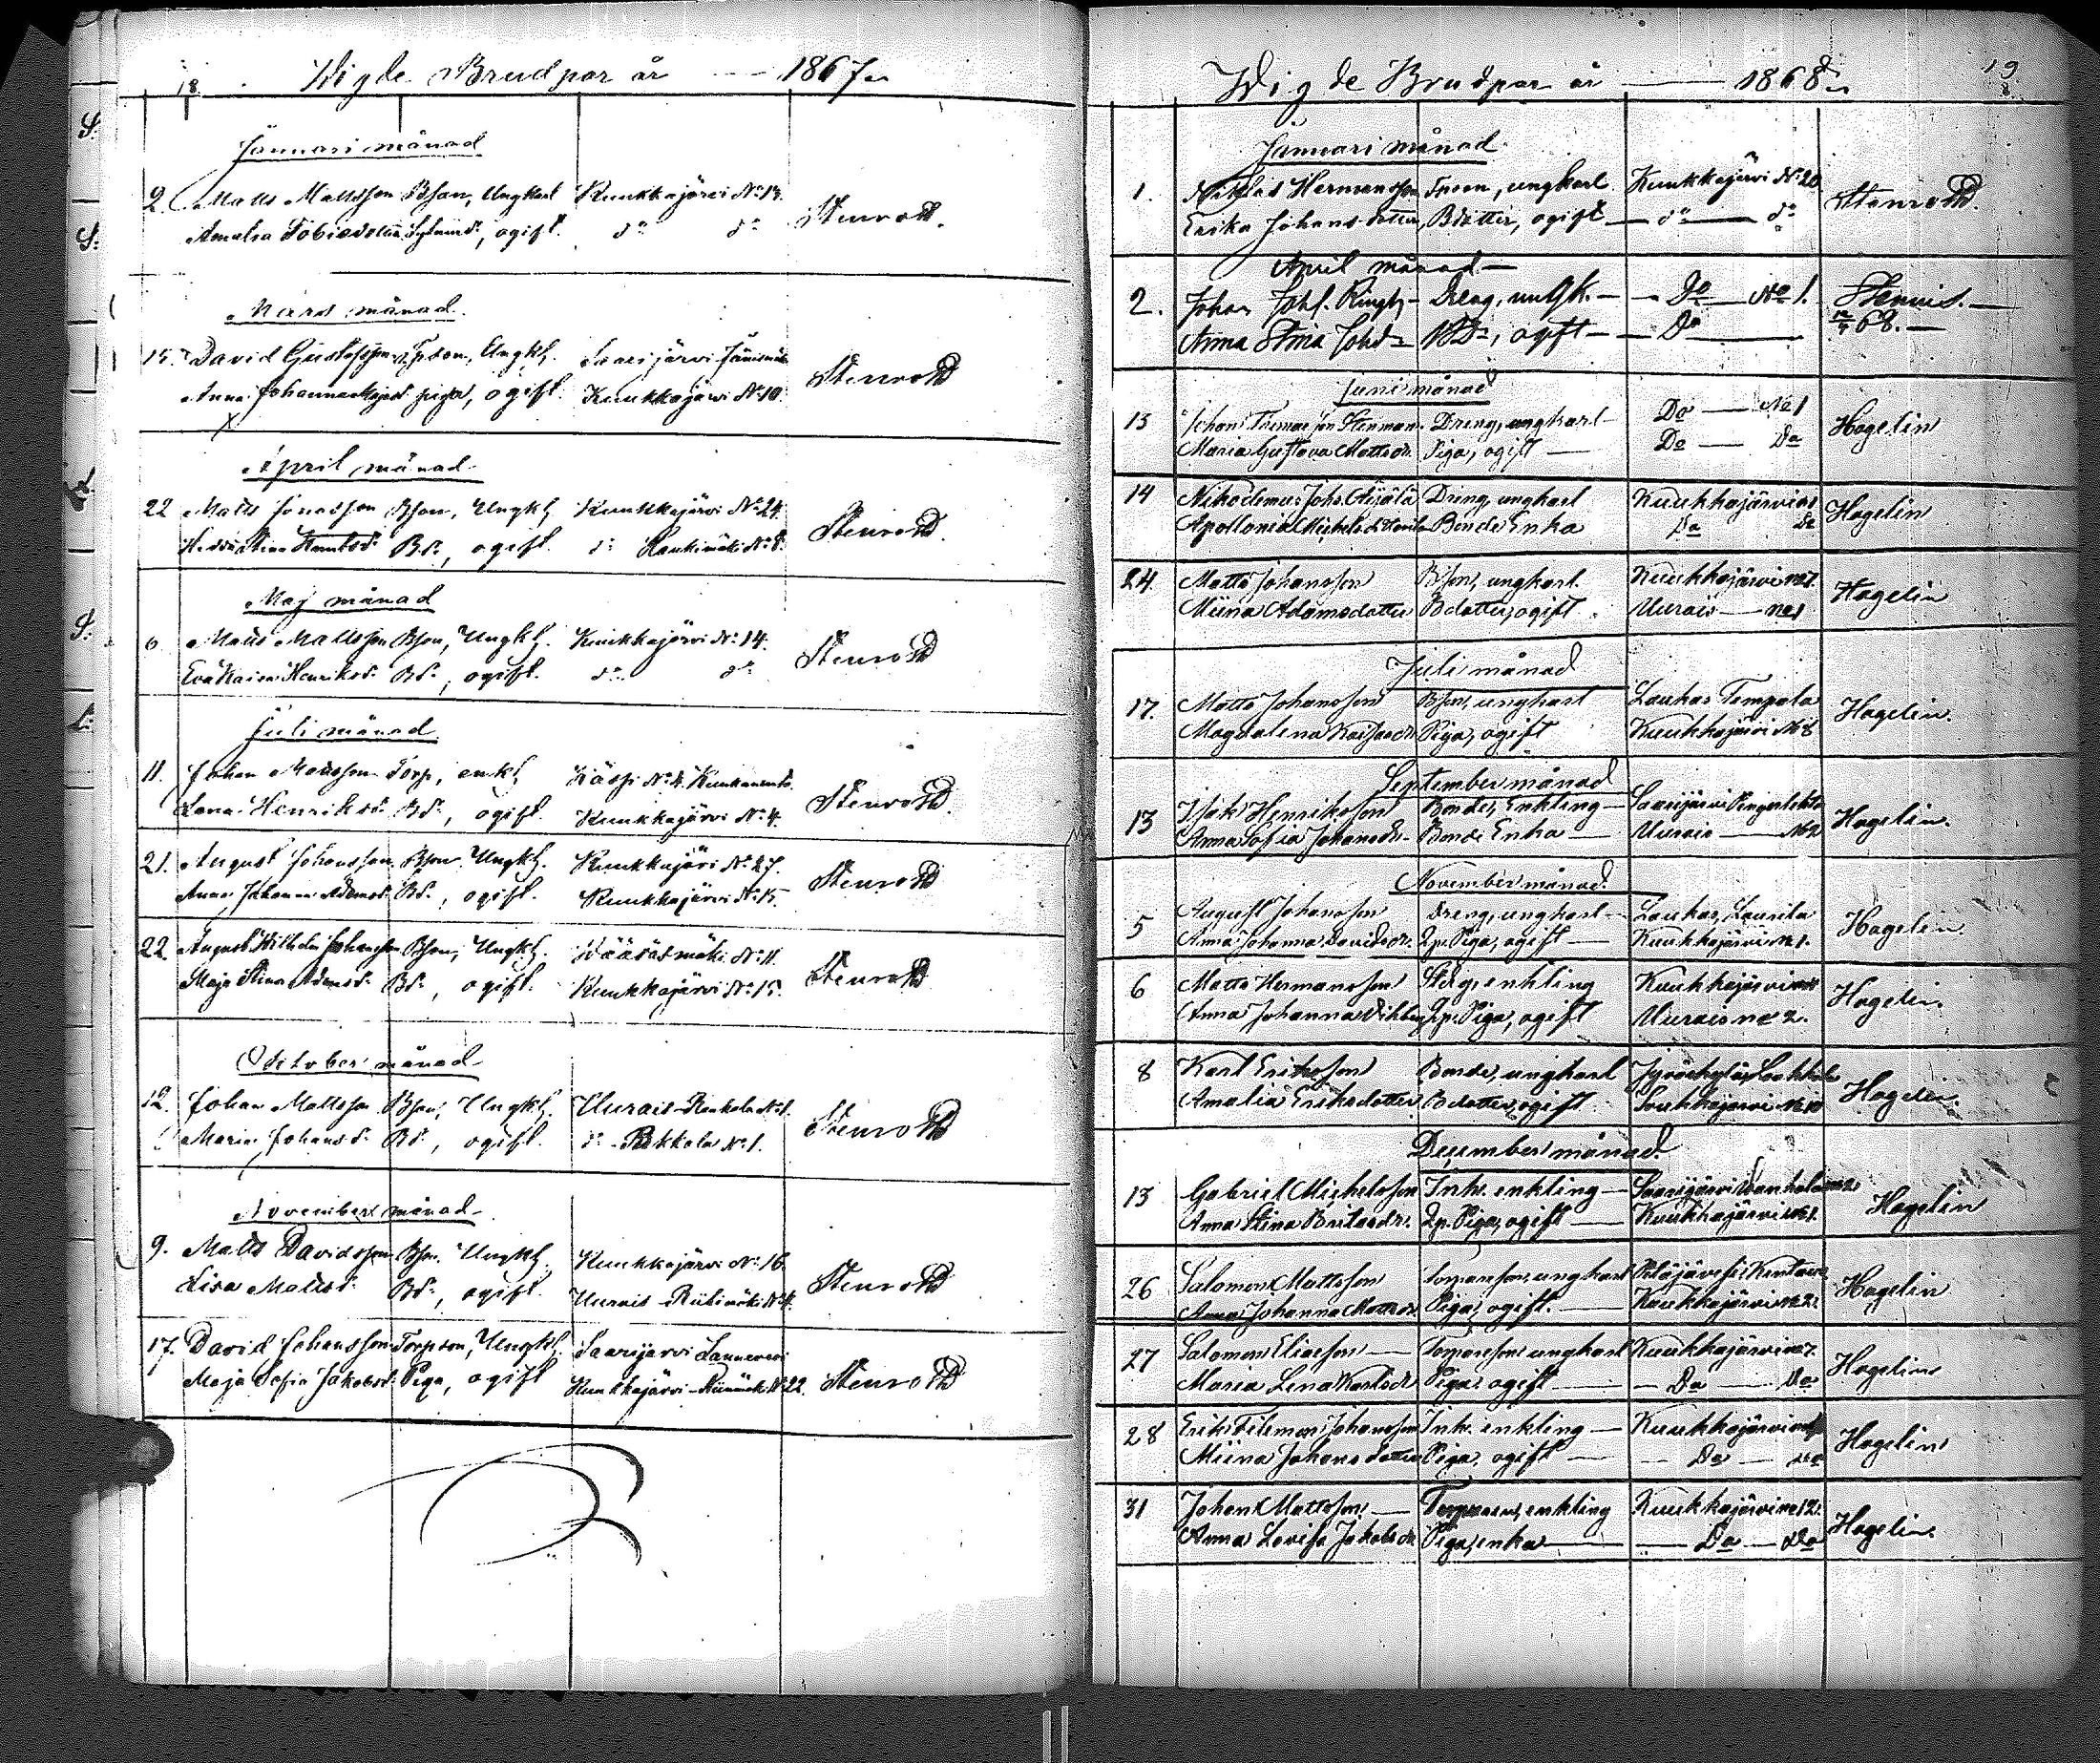 18. Wigde Brudpar år — 1867
Januari månad
9. Matts Mattsson Bson, Ungkarl Kuukkajärvi No 13. Stenroth.
Amalia Tobiasdotter, ogift. do do
Mars månad
15. David Gustafsson, Tpson, Ungkl. Saarijärvi
Anna Johanna piga, ogift. Kuukkajärvi No 10. Stenroth
X
April månad
22 Matts Jonasson Bson, Ungkl. Kuukkajärvi No 24. Stenroth.
Hedda Stina Bd., ogift. do Haukimäki No 8.
Maj månad
6 Matts Mattsson Bson, Ungkl. Kuukkajärvi No 14. Stenroth
Eva Kaisa Henriksd. Bd., ogift. do do
Juli månad
11. Johan Matsson Torp, enkl. Kuukkajärvi No 4. Stenroth.
Lena Henriksd. Bd., ogift.
21. August Johansson Bson Ungkl. Kuukkajärvi No 27. Stenroth
Anna Johanna Adamsd. Bd., ogift. Kuukkajärvi No 15.
22. August Wilhelm Johansson Bson, Ungkl. No 11. Stenroth
Maja Stina Adamsd. Bd., ogift. Kuukkajärvi No 15.
October månad
12. Johan Mattsson Bson, Ungkl. Uurais No 1. Stenroth
Maria Johansd. Bd., ogift. do Pekkala No 1.
November månad
9. Matts Davidsson Bson. Ungkl. Kuukkajärvi No 16 Stenroth
Lisa Matsd. Bd., ogift. Uurais Riitimäki No 4.
17. David Johansson Torpson, Ungkl. Saarijärvi Lannevesi Stenroth
Maja Sofia Jakobsd. Piga, ogift Kuukkajärvi No 22.
Wigde Brudpar år — 1868 19
Januari månad
1. Niklas Hermansson Tpson, ungkarl Kuukkajärvi No 20 Stenroth.
Erika Johansdotter, Bdotter, ogift — do — do
April månad —
2. Johan Dreng, ungk. — Do No 1.
Anna Stina Johd. Bd., ogift — Do 68. —
Juni månad
13 Johan Thomasson Stenman Dreng, ungkarl — Do — No 1 Hagelin
Maria Gustava Mattsdr. Piga, ogift — Do — Do
14 Nikodemus Johs. Dreng, ungkarl Kuukkajärvi Hagelin
Apollonia Bonde Enka Do Do
24. Matts Johansson Bson, ungkarl Kuukkajärvi No 7. Hagelin
Miina Adamsdotter Bdotter, ogift. Uurais — No 1
Juli månad
17. Matts Johansson Bson, ungkarl Laukas Tempala Hagelin.
Magdalena Piga, ogift Kuukkajärvi No 8
September månad
13 Isak Henriksson Bonde, Enkling — Saarijärvi Hagelin.
Anna Sofia Johansdr. Bonde Enka — Uurais — No 2
November månad
5 August Johansson Dreng, ungkarl — Laukas, Laurila Hagelin
Anna Johanna Davidsdr. Piga, ogift — Kuukkajärvi No 1.
6 Matts Hermansson enkling Kuukkajärvi Hagelin.
Anna Johanna Piga, ogift Uurais No 2.
8 Karl Eriksson Bonde, ungkarl Hagelin.
Amalia Eriksdotter Bdotter, ogift
December månad
13 Gabriel Michelsson Inh. enkling — Saarijärvi Hagelin
Anna Stina Piga, ogift — Kuukkajärvi No 1.
26 Salomon Mattsson ungkarl Hagelin
Anna Johanna Mattsdr Piga, ogift. — Kuukkajärvi No 2.
27 Salomon Eliasson — ungkarl Kuukkajärvi No 7. Hagelin
Maria Lena Karlsdr Piga ogift — Do — Do
28 Erik Filemon Johansson Inh. enkling — Kuukkajärvi Hagelin
Miina Johansdotter Piga ogift — Do — Do
31 Johan Mattsson — enkling Kuukkajärvi No 12. Hagelin.
Anna Lovisa Jakobsdr Piga, enka — Do — Do